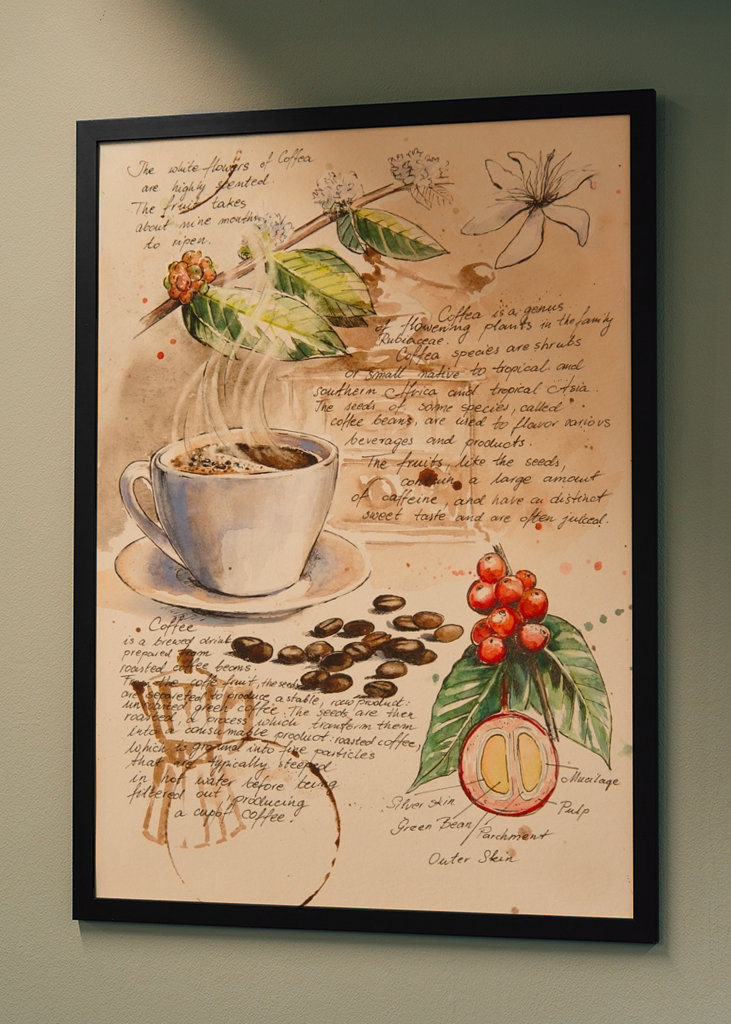 The white flowers of Coffea
are highly scented.
The fruit takes
about nine months
to ripen.
Coffea is a genus
of flowering plants in the family
Rubiaceae.
Coffea species are shrubs
or small native to tropical and
southern Africa and tropical Asia.
The seeds of some species, called
coffee beans, are used to flavor various
beverages and products.
The fruits, like the seeds,
contain a large amount
of caffeine, and have a distinct
sweet taste and are often juiced.
Coffee
is a brewed drink
prepared from
roasted coffee beans.
From the coffe fruit, the seeds
are separeted to produce a stable, raw product:
unroasted green coffee. The seeds are then
roasted, a process which transform them
into a consumable product: roasted coffee,
which is ground into fine particles
that are typically steeped
in hot water before being
filtered out, producing
a cup of coffee.
Mucilage
Silver skin
Pulp
Green Bean
Parchment
Outer Skin